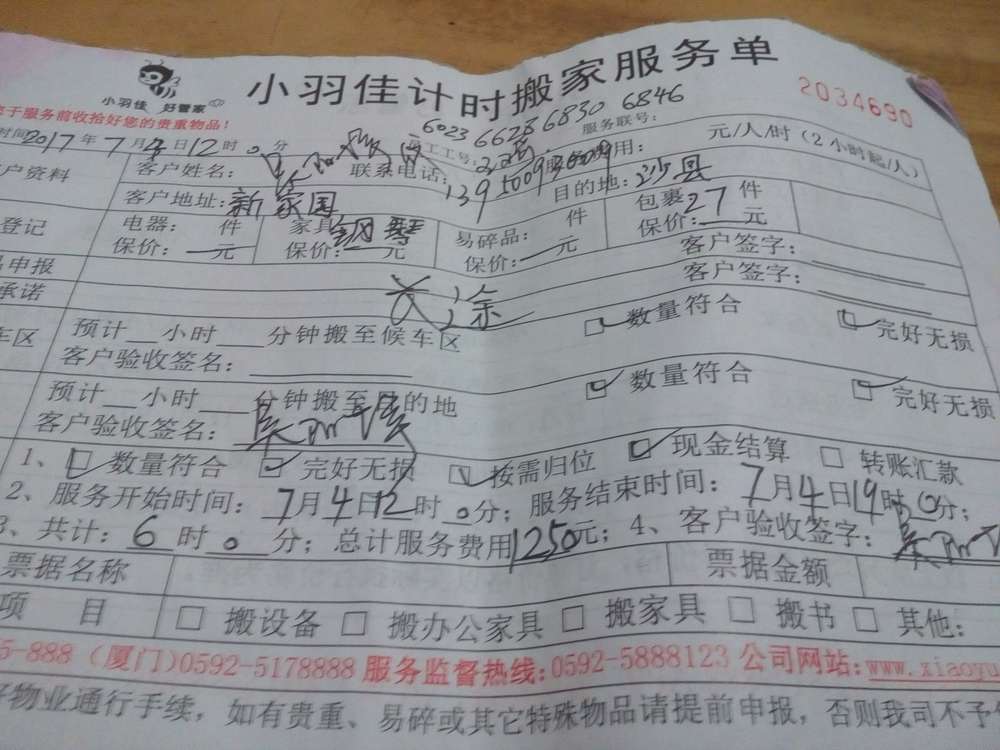 小羽佳 好管家
小羽佳计时搬家服务单
2034690
于服务前收拾好您的贵重物品！
6023 6628 6830 6846
时间2017年7月4日12时0分
工工号： 服务联号：
户资料 客户姓名： 联系电话： 费用： 元/人/时（2小时起/人）
客户地址：新家园 目的地：沙县
登记 电器： 件 家具 钢琴 易碎品： 件 包裹27件
保价： 元 保价： 元 保价： 元 保价： 元
申报 客户签字：
承诺 客户签字：
车区 预计 小时 分钟搬至候车区 数量符合 完好无损
客户验收签名：
预计 小时 分钟搬至目的地 数量符合 完好无损
客户验收签名：
1、 数量符合 完好无损 按需归位 现金结算 转账汇款
2、服务开始时间：7月4日12时0分；服务结束时间：7月4日19时0分；
3、共计：6时0分；总计服务费用1250元；4、客户验收签字：
票据名称 票据金额
项 目 搬设备 搬办公家具 搬家具 搬书 其他：
5-888（厦门）0592-5178888 服务监督热线：0592-5888123 公司网站：www.xiaoyu
好物业通行手续，如有贵重、易碎或其它特殊物品请提前申报，否则我司不予